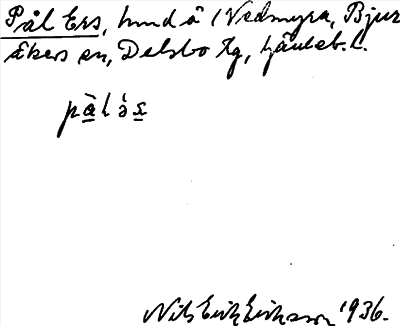 Pål Ers, hemd å (Vedmyra, Bjur
åkers sn, Delsbo tg, Gävleb. l.
pàlés
Nils Erik Eriksson 1936.